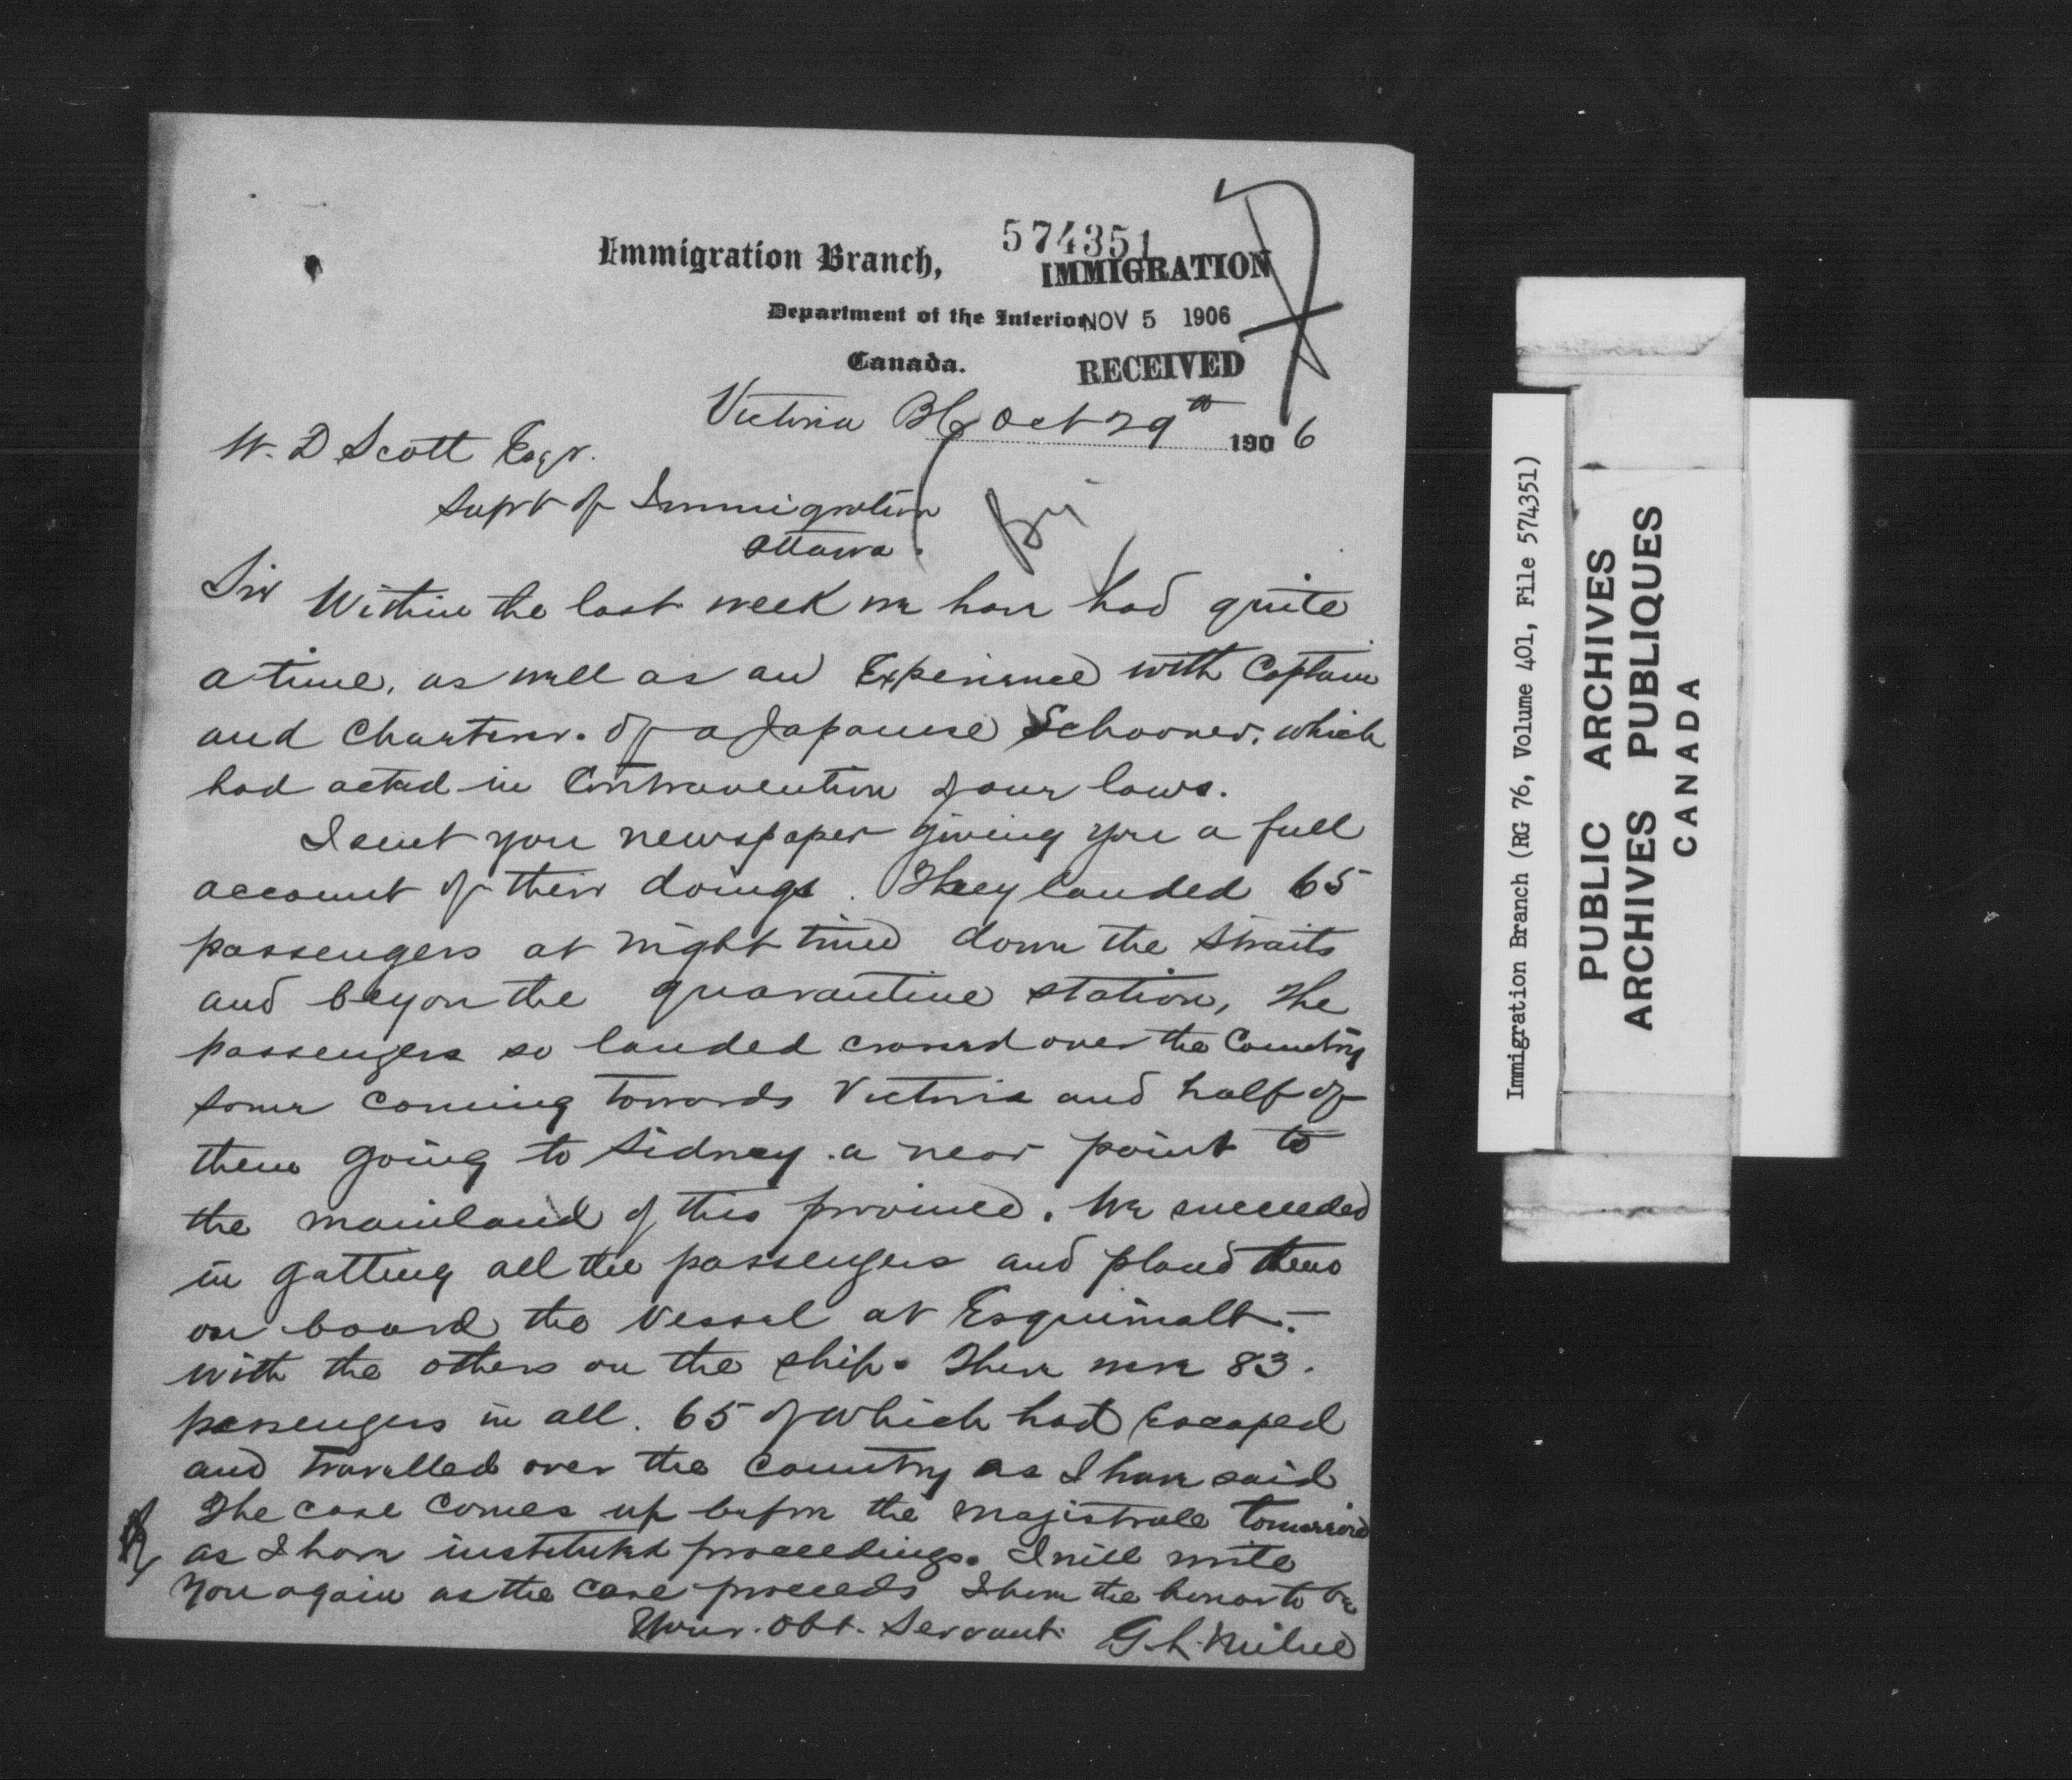 574351
Immigration Branch,
IMMIGRATION
Department of the Interior
NOV 5 1906
Canada.
RECEIVED
Victoria BC Oct 29th 1906
W. D Scott Esqr.
Supt of Immigration
Ottawa.
Sir Within the last week we have had quite
a time, as well as an Experience with Captain
and Charterer. of a Japanese Schooner, which
had acted in Contravention of our laws.
I sent you newspaper giving you a full
account of their doings. They landed 65
passengers at night time down the Straits
and beyon the quarantine station, The
passengers so landed crossed over the Country
some coming towards Victoria and half of
them going to Sidney. a near point to
the mainland of this province. We succeeded
in getting all the passengers and placed them
on board the Vessel at Esquimalt.—
with the others on the ship. There were 83.
passengers in all. 65 of which had Escaped
and travelled over the Country as I have said
The case comes up before the Magistrate tomorrow
as I have instituted proceedings. I will write
you again as the case proceeds I have the honor to be
Your. Obt. Servant. G. L. Milne
Immigration Branch (RG 76, Volume 401, File 574351)
PUBLIC ARCHIVES
ARCHIVES PUBLIQUES
CANADA